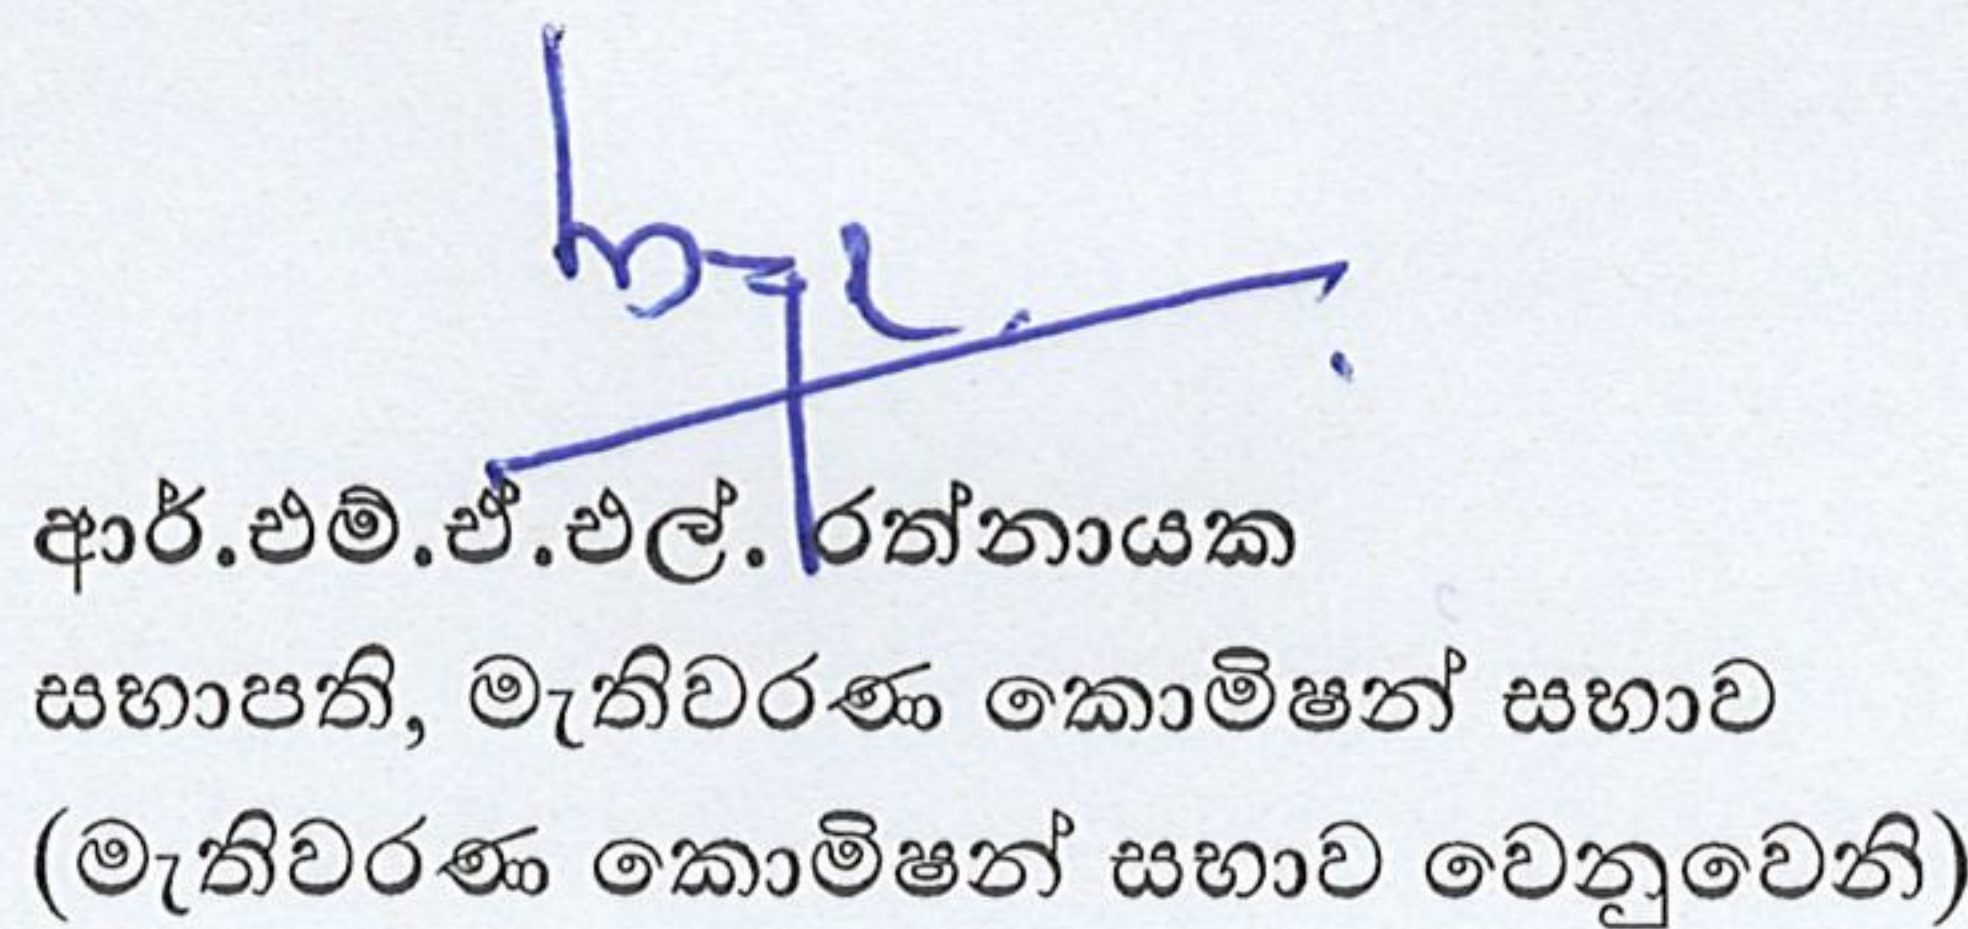 ආර්.එම්.ඒ.එල්. රත්නායක
සභාපති, මැතිවරණ කොමිෂන් සභාව
(මැතිවරණ කොමිෂන් සභාව වෙනුවෙනි)